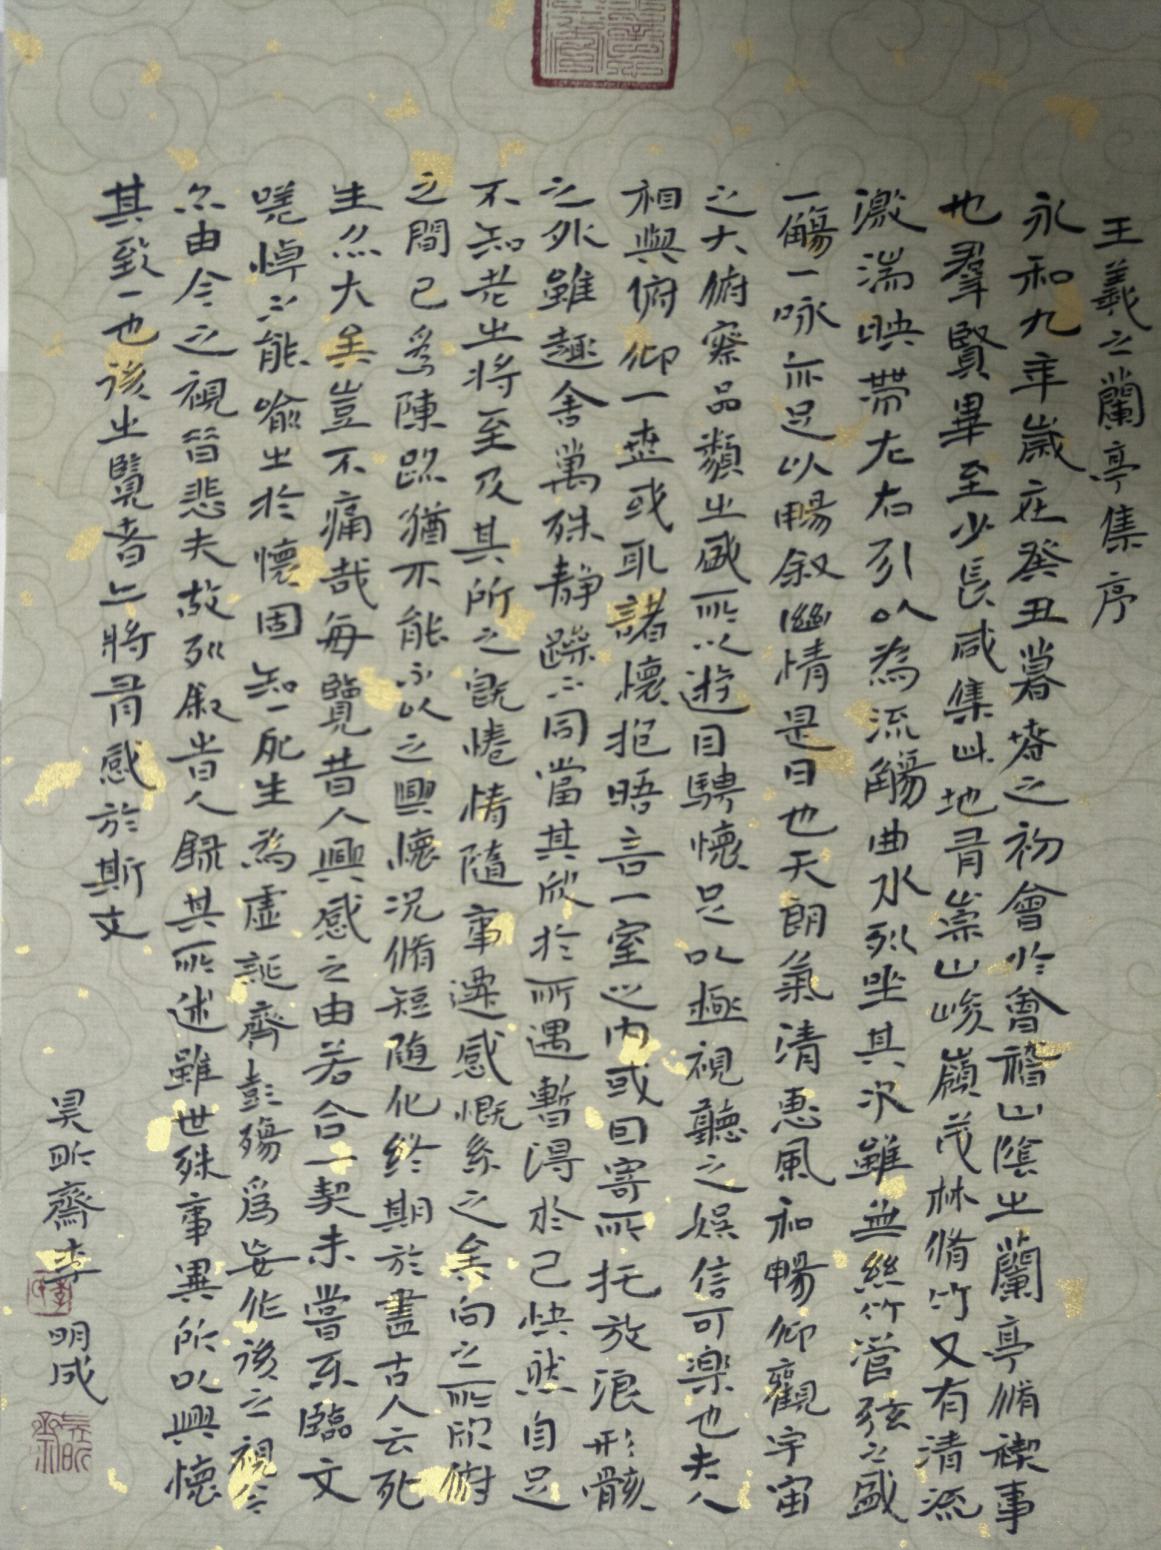 王羲之蘭亭集序
永和九年歲在癸丑暮春之初會於會稽山陰之蘭亭脩禊事
也羣賢畢至少長咸集此地有崇山峻嶺茂林脩竹又有清流
激湍映帶左右引以為流觴曲水列坐其次雖無絲竹管弦之盛
一觴一咏亦足以暢叙幽情是日也天朗氣清惠風和暢仰觀宇宙
之大俯察品類之盛所以遊目騁懷足以極視聽之娛信可樂也夫人
相與俯仰一世或取諸懷抱晤言一室之內或因寄所托放浪形骸
之外雖趣舍萬殊靜躁不同當其欣於所遇暫得於己怏然自足
不知老之將至及其所之既惓情隨事遷感慨系之矣向之所欣俯
之間已為陳跡猶不能不以之興懷況脩短随化終期於盡古人云死
生亦大矣豈不痛哉每覽昔人興感之由若合一契未嘗不臨文
嗟悼不能喻之於懷固知一死生為虛誕齊彭殤為妄作後之視今
亦由今之視昔悲夫故列叙昔人録其所述雖世殊事異所以興懷
其致一也後之覽者亦將有感於斯文
昊昕齋李明成